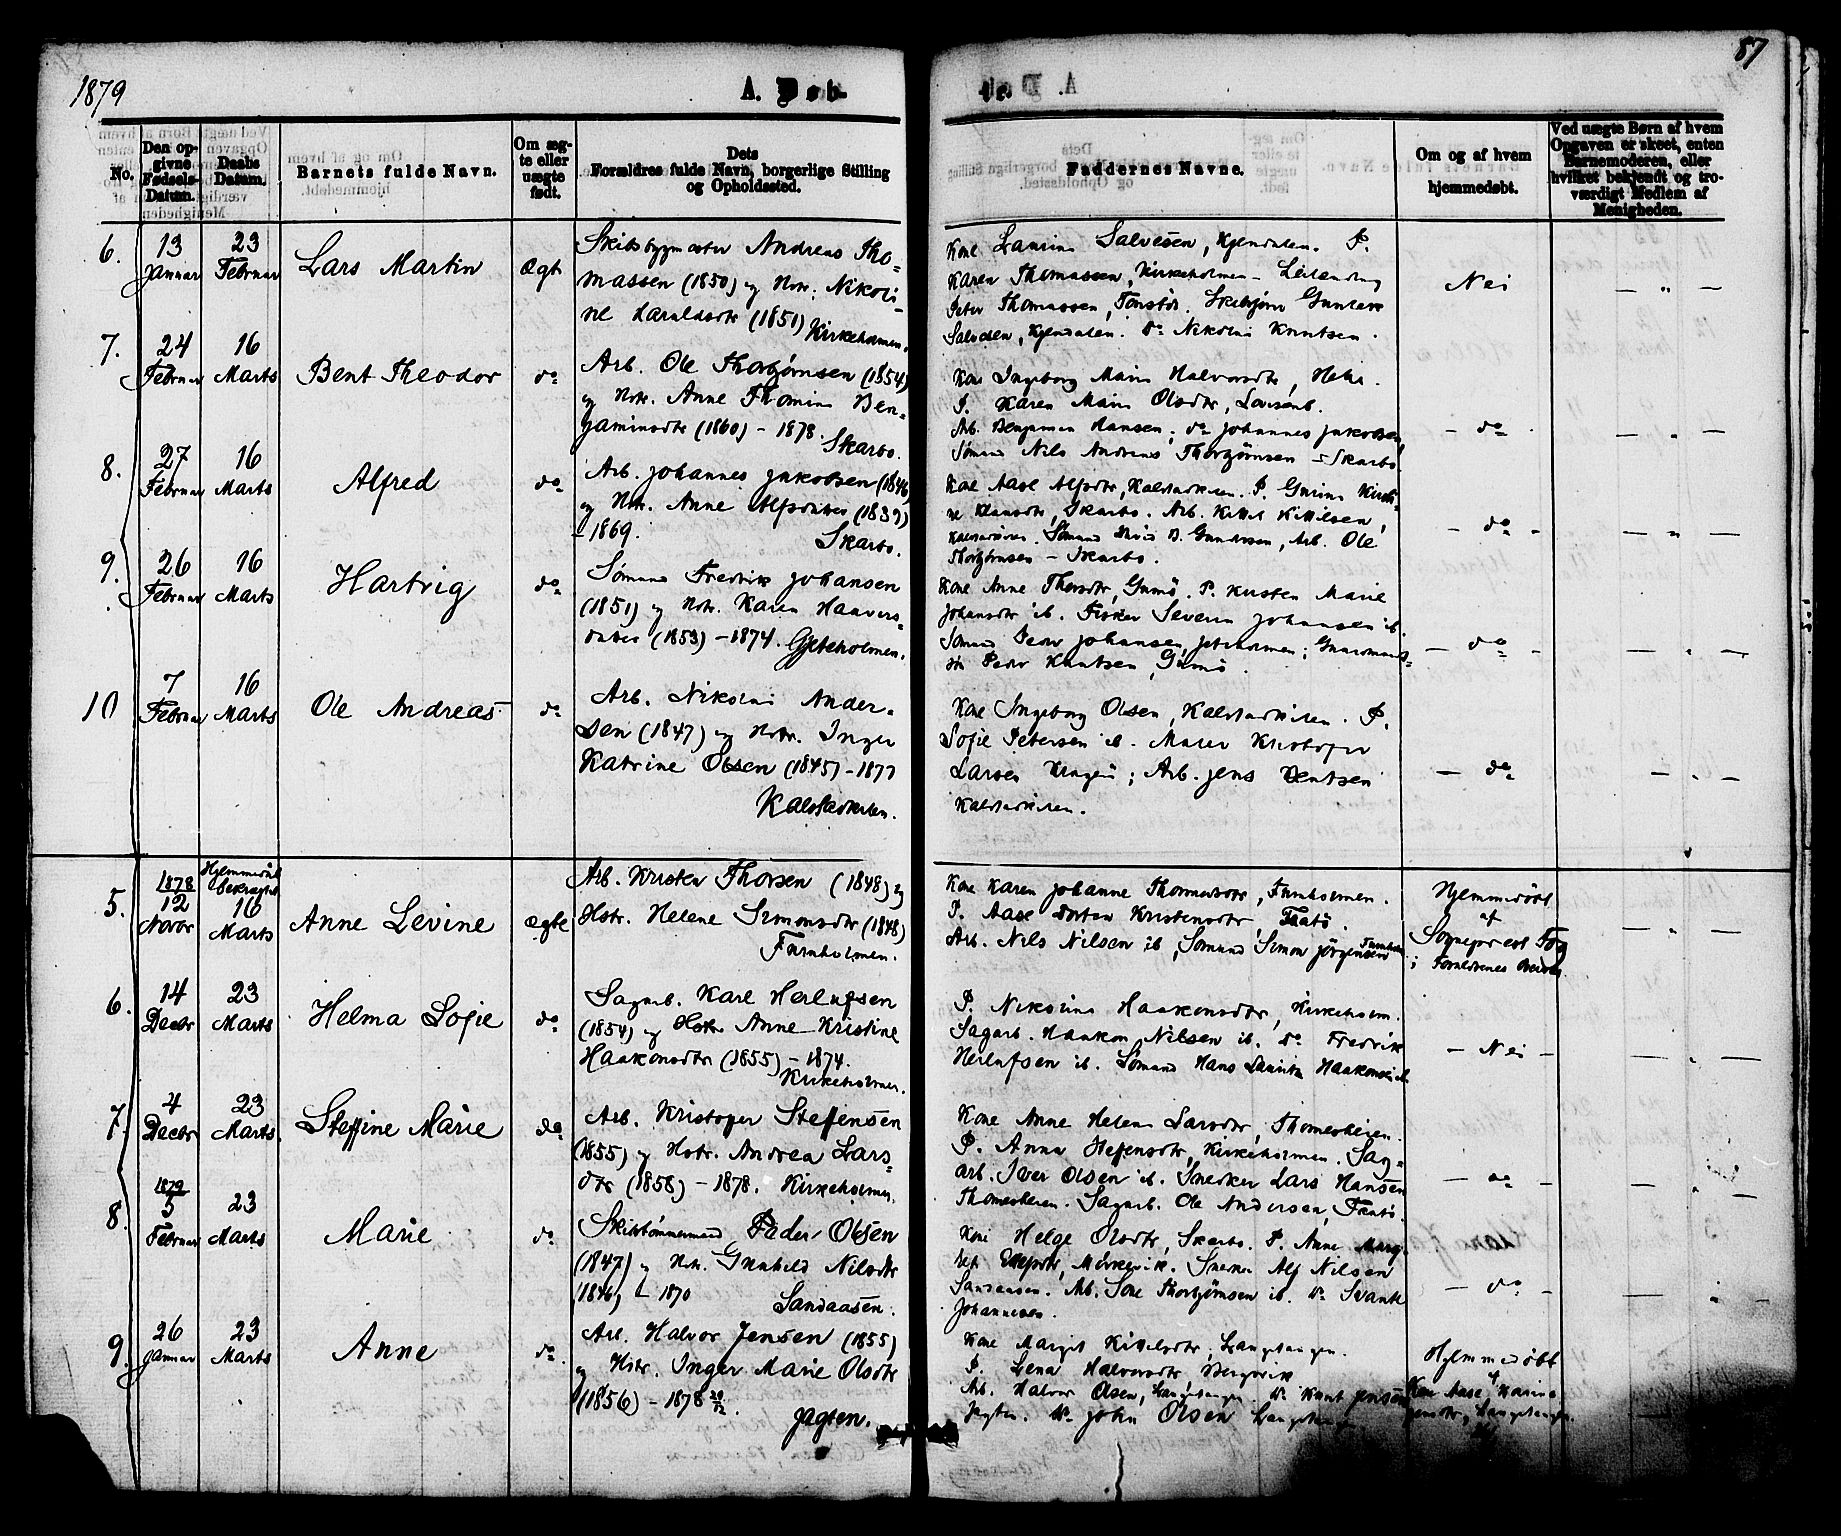 1879
A. Døb-
te.
87
No.
Den op-
givne
Fødsels-
Datum.
Daabs
Datum.
Barnets fulde Navn.
Om æg-
te eller
uægte
født.
Dets
Forældres fulde Navn, borgerlige Stilling
og Opholdssted.
Faddernes Navne.
Om og af hvem
hjemmedøbt.
Ved uægte Børn af hvem
Opgaven er skeet, enten
Barnemoderen, eller
hvilket bekjendt og tro-
værdigt Medlem af
Menigheden.
6.
13
Januar
23
Februar
Lars Martin
Ægt
Skibsbygmester Andreas Tho-
massen (1850) og Hstr. Nikoli-
ne Haraldsdtr (1851)
Kirkeholmen.
Kone Laurine Salvesen, Kjendalen. P.
Karen Thomassen, Kirkeholmen –
Peter Thomassen, Tønstøl. Skibstjøm Gunleik
Salvesen, Kjendalen. do Nikolai Knutsen.
Nei
— „ —
7.
24
Februar
16
Marts
Bent Theodor
do
Arb. Ole Thorbjørnsen (1854)
og Hstr. Anne Thomine Ben-
jaminsdtr (1860) – 1878.
Skarbo.
Kone Ingeborg Marie Halvorsdtr, Helle.
P. Karen Marie Olsdtr, Lovisenb.
Arb. Benjamin Hansen; do Johannes Jakobsen,
Sømand Nils Andreas Thorbjørnsen – Skarbo.
— do —
— „ —
8.
27
Februar
16
Marts
Alfred
do
Arb. Johannes Jakobsen (1846)
og Hstr. Anne Alfsdatter (1839)
– 1869.
Skarbo.
Kone Aase Alfsdtr, Kalstadkilen. P. Gurine Kirsti-
ne Hansdtr, Skarbo. Arb. Kittil Kittilsen,
Kalstadkilen. Sømand B. Gundersen, Arb. Ole
Thorbjørnsen – Skarbo.
— do —
— „ —
9.
26
Februar
16
Marts
Hartvig
do
Sømand Fredrik Johansen
(1851) og Hstr. Karen Haavors-
datter (1853) – 1874. Gjeteholmen.
Kone Anne Thorsdtr, Gumø. P. Kirsten Marie
Johansdtr ib. Fisker Severin Johansen ib.
Sømand Peder Johansen, Jeteholmen; Gaardmands-
søn Peder Knutsen, Gumø.
— do —
— „ —
10
7
Februar
16
Marts
Ole Andreas
do
Arb. Nikolai Ander-
sen (1847) og Hstr. Inger
Katrine Olsen (1845) – 1877
Kalstadkilen.
Kone Ingeborg Olsen, Kalstadkilen. P.
Sofie Petersen ib. Maler Kristofer
Larsen Kragerø; Arb. Jens Bentsen
Kalstadkilen.
— do —
— „ —
5.
1878
12
Novbr
Hjemmedaab
bekræftet
16
Marts
Anne Levine
Ægte
Arb. Kristen Thorsen (1848) og
Hstr. Helene Simonsdtr (1848)
Furuholmen.
Kone Karen Johanne Thormodsdtr, Furuholmen.
P. Aase Dorthea Kristensdtr, Tåtø.
Arb. Nils Nilsen ib, Sømand Simon Jørgensen Furuholm
Hjemmedøbt
af
Sogneprest Fog
i Forældrenes Bolig.
— „ —
6.
14
Decbr
23
Marts
Helma Sofie
do
Sagarb. Karl Herlufsen
(1854) og Hstr Anne Kristine
Haakonsdtr (1855) – 1874.
Kirkeholmen.
P. Nikoline Haakonsdtr, Kirkeholm.
Sagarb. Haakon Nilsen ib. do Fredrik
Herlufsen ib. Sømand Hans Lauritz Haakonsen ib.
— Nei —
— „ —
7.
4
Decbr
23
Marts.
Steffine Marie
do
Arb. Kristofer Steffensen
(1855) og Hstr. Andrea Lars-
dtr (1858) – 1878. Kirkeholmen.
Kone Anne Helene Larsdtr, Thomesheien.
P. Anna Steffensdtr, Kirkeholmen. Sag-
arb. Iver Olsen ib. Snedker Lars Hansen
Thomesheien. Sagarb. Ole Andersen, Tåtø.
— do —
— „ —
8.
1879
5
Februar
23
Marts
Marie
do
Skibstømmermand Peder Olsen
(1847) og Hstr. Gunhild Nilsdtr
(1846) – 1870
Sandaasen.
Kone Helge Olsdtr, Skarbo. P. Anne Marg-
ret Ellefsdtr, Mørkevik. Snedker Alf Nilsen
Sandaasen. Arb. Sone Thorbjørnsen ib. do Svante
Johannesen.
— do —
— „ —
9.
26
Januar
23
Marts
Anne
do.
Arb. Halvor Jensen (1855)
og Hstr. Inger Marie Olsdtr
(1856) – 1878 20/12.
Jagten.
Kone Margit Kittilsdtr, Langehaugen.
P. Lena Halvorsdtr, Bergvik
Arb. Halvor Olsen, Langehaugen do Knut Jensen
Jagten. do John Olsen Langehaugen.
Hjemmedøbt
af
Kone Aase Karine
Jensdtr, Langehaugen.